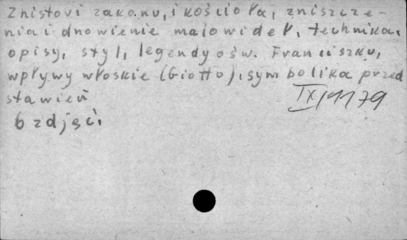 Znistovi zakonu, i kościoła, zniszcze-
nia i dnowienie malowideł, technika,
opisy, styl, legendy o św. Franciszku,
wpływy włoskie (Giotto), symbolika przed
stawień
IX/1179
6 zdjęć.